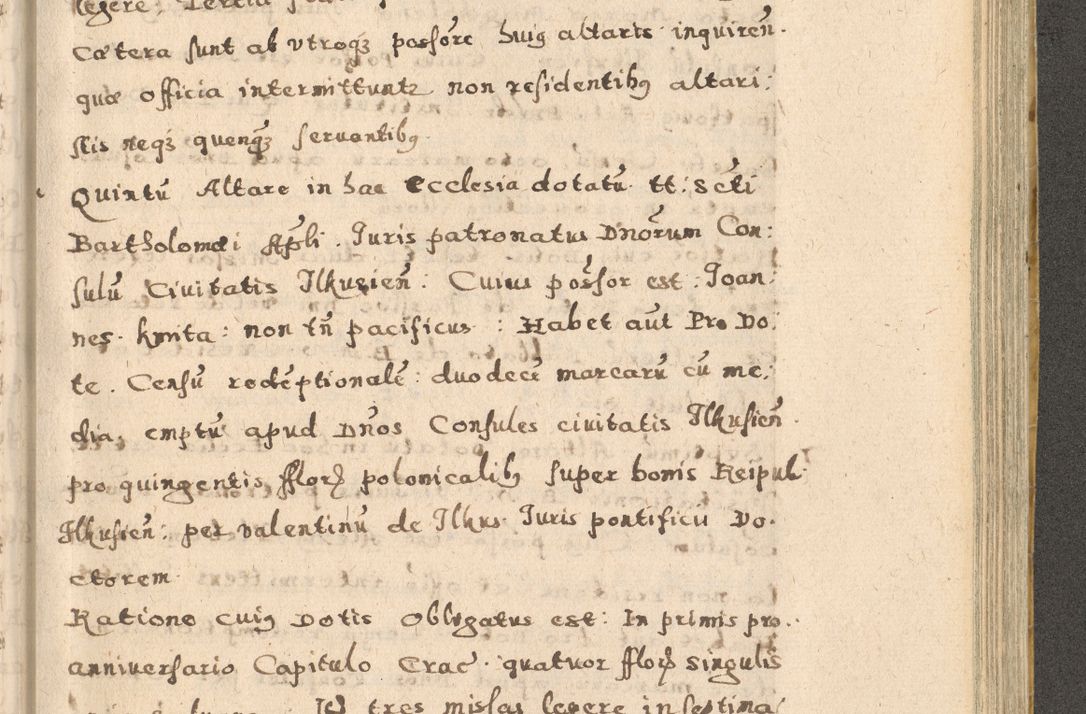 legere, Tertia
Cætera sunt ab vtroqʒ possōre huiꝰ altaris inquirēn.
quæ officia intermittuntʳ non residentibꝰ altari:
stis neqʒ quenqʒ seruantibꝰ
Quintū Altare in hac Ecclesia dotatū tt: Scti
Bartholomæi Apli. Iuris patronatus Dnōrum Con:
sulū Ciuitatis Ilkusień: Cuius possor est: Joan:
nes kmita: non tn̄ pacificus: Habet aūt Pro Do:
te. Censū redēptionalē: duodecī marcarū cū me:
dia, emptū apud Dn̄os Consules ciuitatis Ilkusień.
pro quingentis fflorꝫ polonicalibꝰ super bonis Reipul:
Ilkusień: per valentinū de Ilkus Iuris pontificii Do.
ctorem
Ratione cuiꝰ Dotis obligatus est: In primis pro.
anniuersario Capitulo Crac. quatuor fflorꝫ singulis
tres missas legere in septima